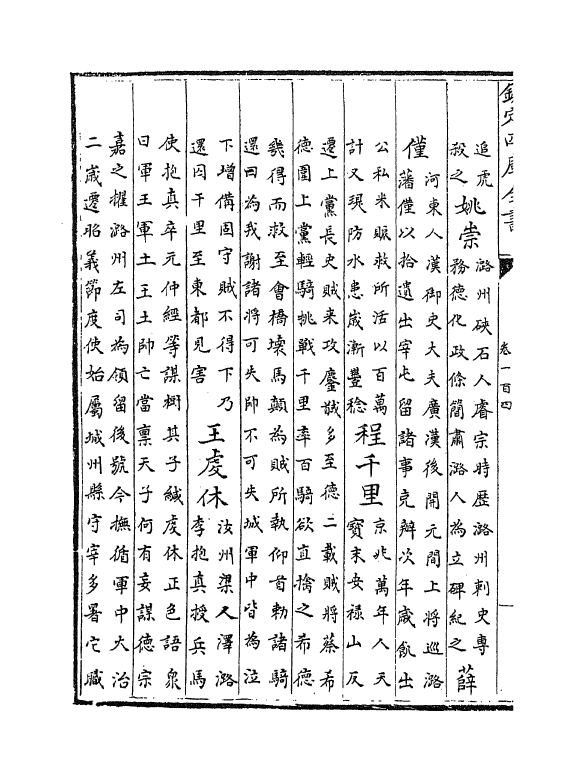 欽定四庫全書
卷一百四
追虎
殺之
姚崇
潞州硤石人睿宗時歷潞州刺史專
務德化政條簡肅潞人為立碑紀之
薛
僅
河東人漢御史大夫廣漢後開元間上將巡潞
藩僅以拾遺出宰屯留諸事克辦次年歲飢出
公私米賑救所活以百萬
計又堤防水患歲漸豐稔
程千里
京兆萬年人天
寶末安祿山反
遷上黨長史賊来攻鏖戰多至德二載賊將蔡希
德圍上黨輕騎挑戰千里率百騎欲直擒之希德
幾得而救至會橋壞馬顛為賊所執仰首勅諸騎
還曰為我謝諸將可失帥不可失城軍中皆為泣
下增備固守賊不得下乃
還囚千里至東都見害
王虔休
汝州梁人澤潞
李抱真授兵馬
使抱真卒元仲經等謀樹其子緘虔休正色語衆
曰軍王軍土王土帥亡當禀天子何有妄謀德宗
嘉之擢潞州左司為領留後號令撫循軍中大治
二歲遷昭義節度使始屬城州縣守宰多署它職